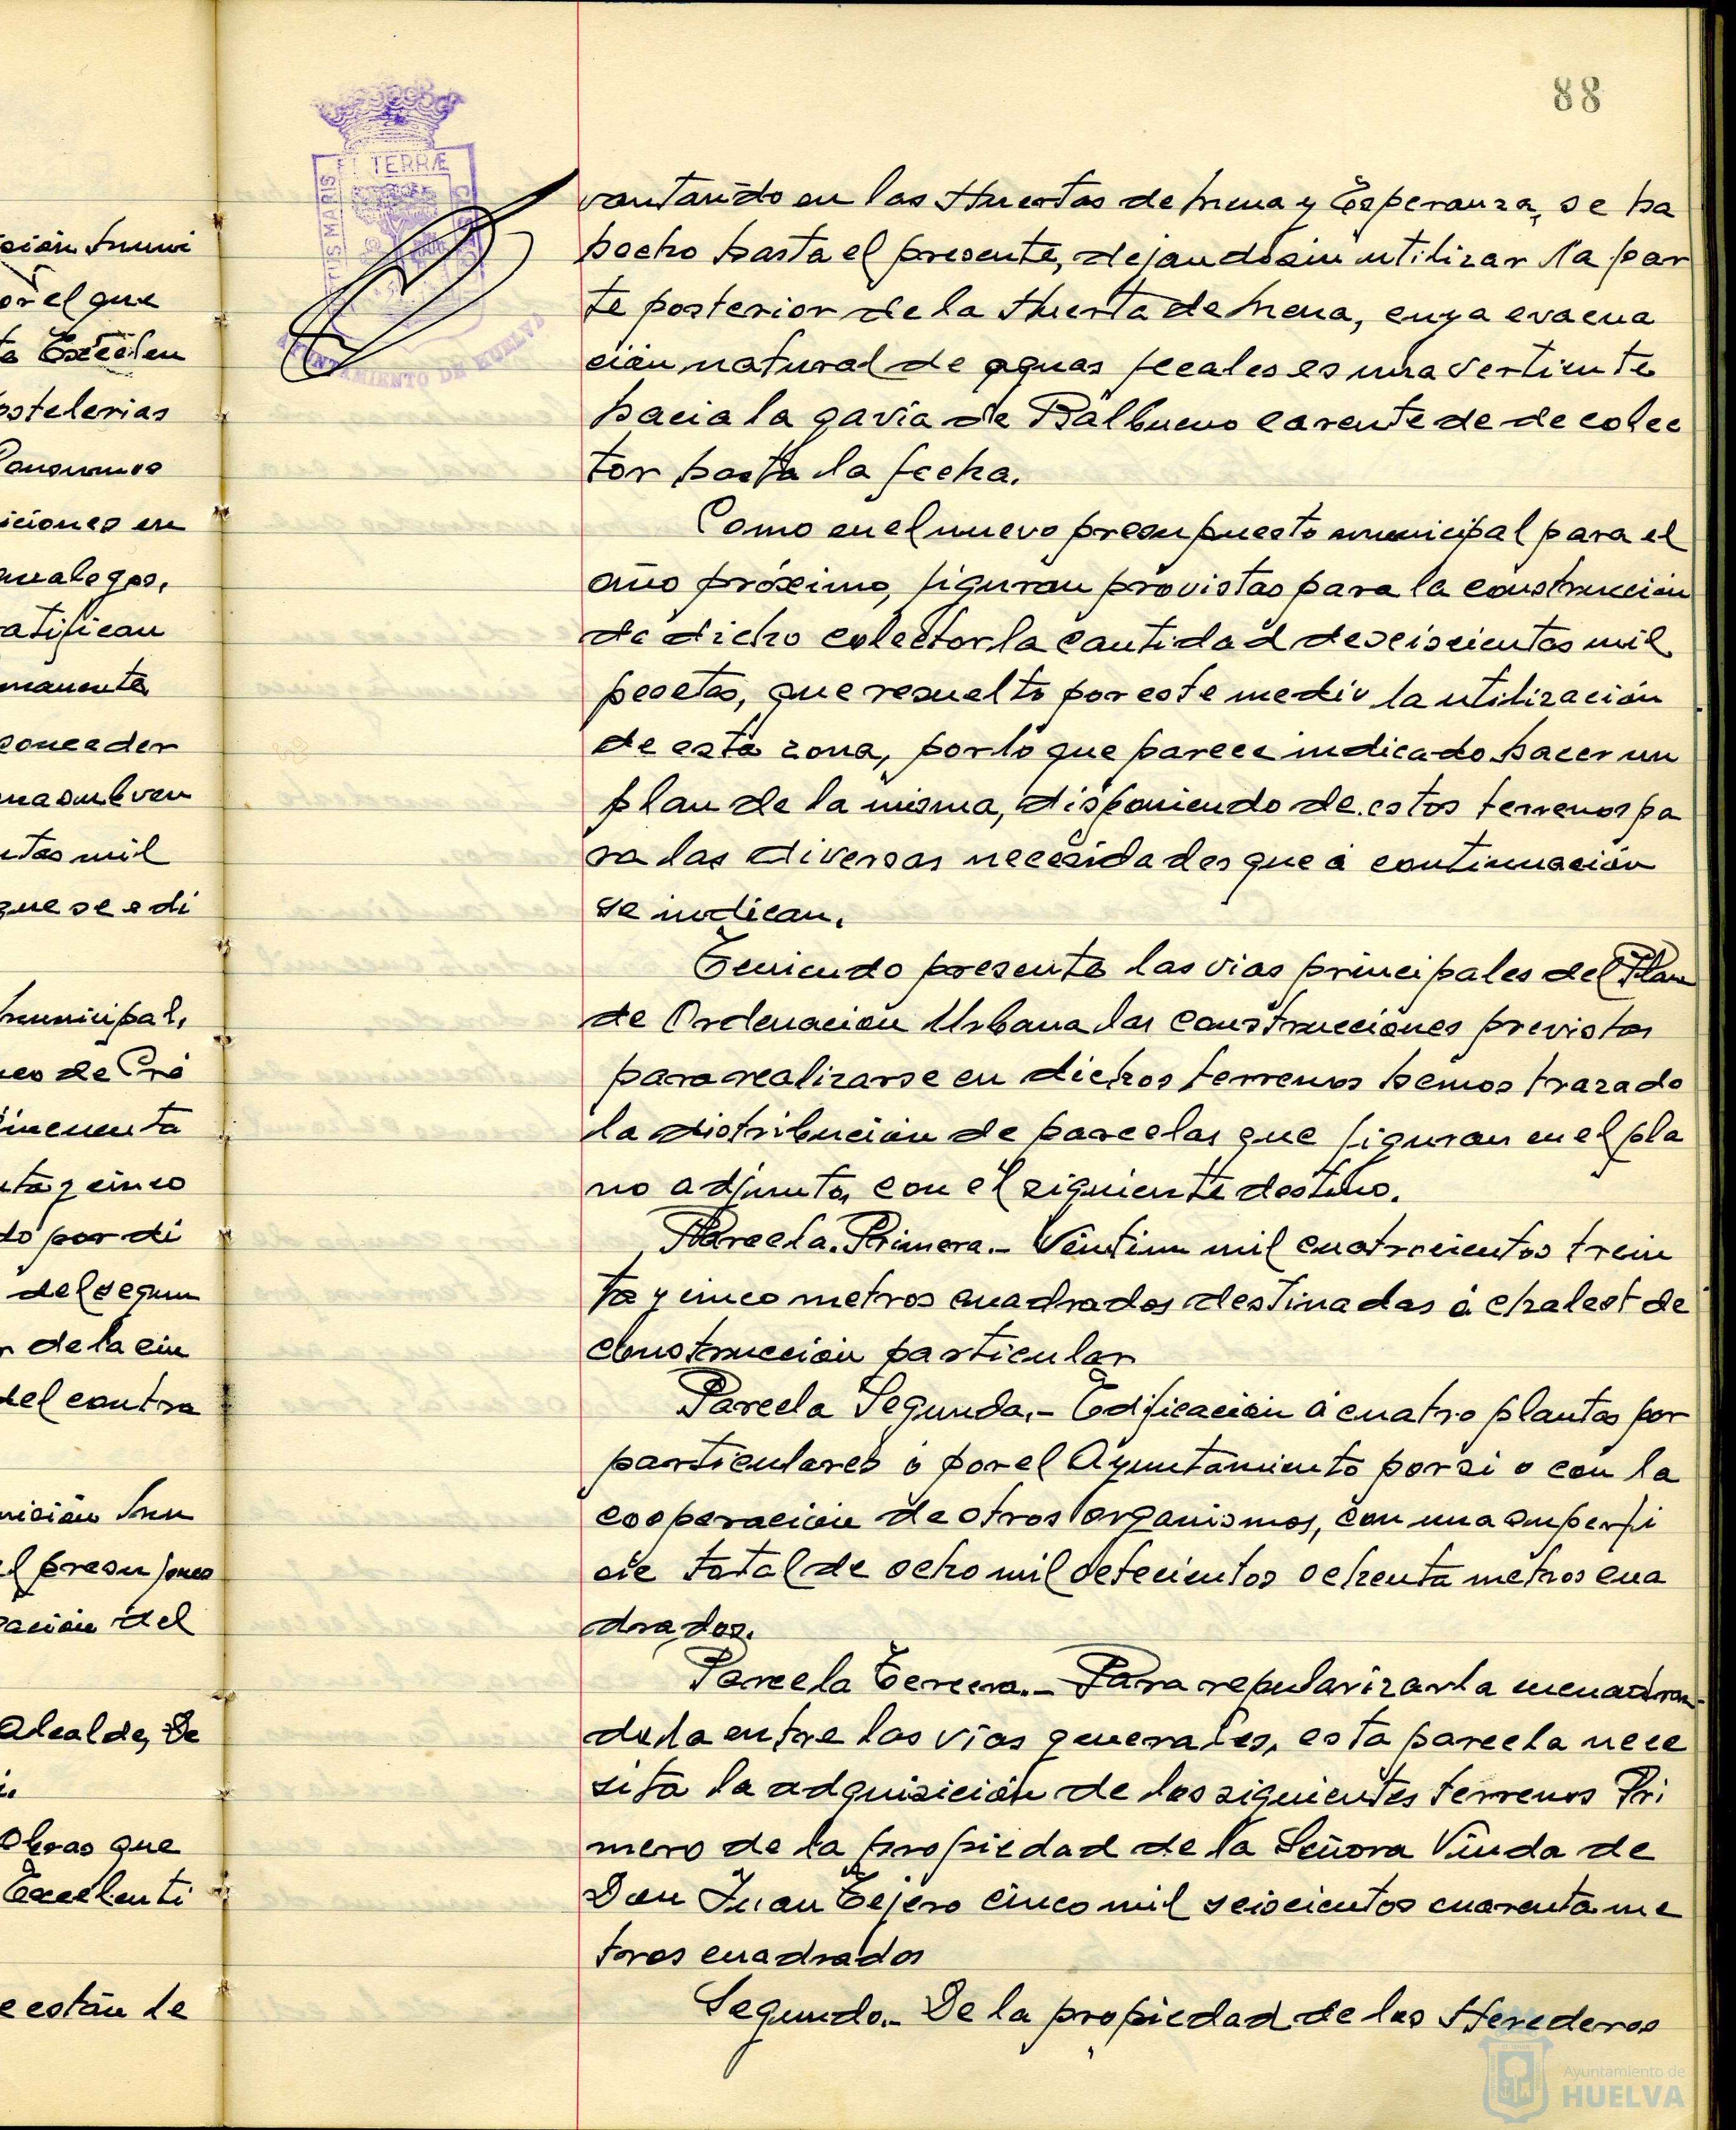 88
TERRÆ
MARIS
AYUNTAMIENTO DE HUELVA
vantando en las Huertas de Mena y Esperanza, se ha
hecho hasta el presente, dejando sin utilizar la par
te posterior de la Huerta de Mena, cuya evacua
ción natural de aguas fecales es una vertiente
hacia la gavia de Balbueno carente de de colec
tor hasta la fecha.
Como en el nuevo presupuesto municipal para el
año próximo, figuran provistas para la construcción
de dicho colector la cantidad de seiscientas mil
pesetas, que resuelto por este medio la utilización
de esta zona, por lo que parece indicado hacer un
plan de la misma, disponiendo de estos terrenos pa
ra las diversas necesidades que á continuación
se indican.
Teniendo presente las vias principales del Plan
de Ordenación Urbana las construcciones previstas
para realizarse en dichos terrenos hemos trazado
la distribución de parcelas que figuran en el pla
no adjunto, con el siguiente destino.
Parcela Primera.- Ventiun mil cuatrocientos trein
ta y cinco metros cuadrados destinadas á chalest de
construcción particular
Parcela Segunda.- Edificación á cuatro plantas por
particulares ó por el Ayuntamiento por si o con la
cooperación de otros organismos, con una superfi
cie total de ocho mil setecientos ochenta metros cua
drados.
Parcela Tercera.- Para regularizarla encuadran-
dola entre las vías generales, esta parcela nece
sita la adquisición de los siguientes terrenos Pri
mero de la propiedad de la Señora Viuda de
Don Juan Tejero cinco mil seiscientos cuarenta me
tros cuadrados
Segundo.- De la propiedad de los Herederos
or el que
ostelerias
iciones en
atifican
manente
conceder
utas mil
que se e di
municipal,
eo de Pré
incuenta
uta y cinco
do por di
del segun
r de la cin
del contra
ación del
Alcalde, De
Obras que
Excelenti
e están le
Ayuntamiento de
HUELVA